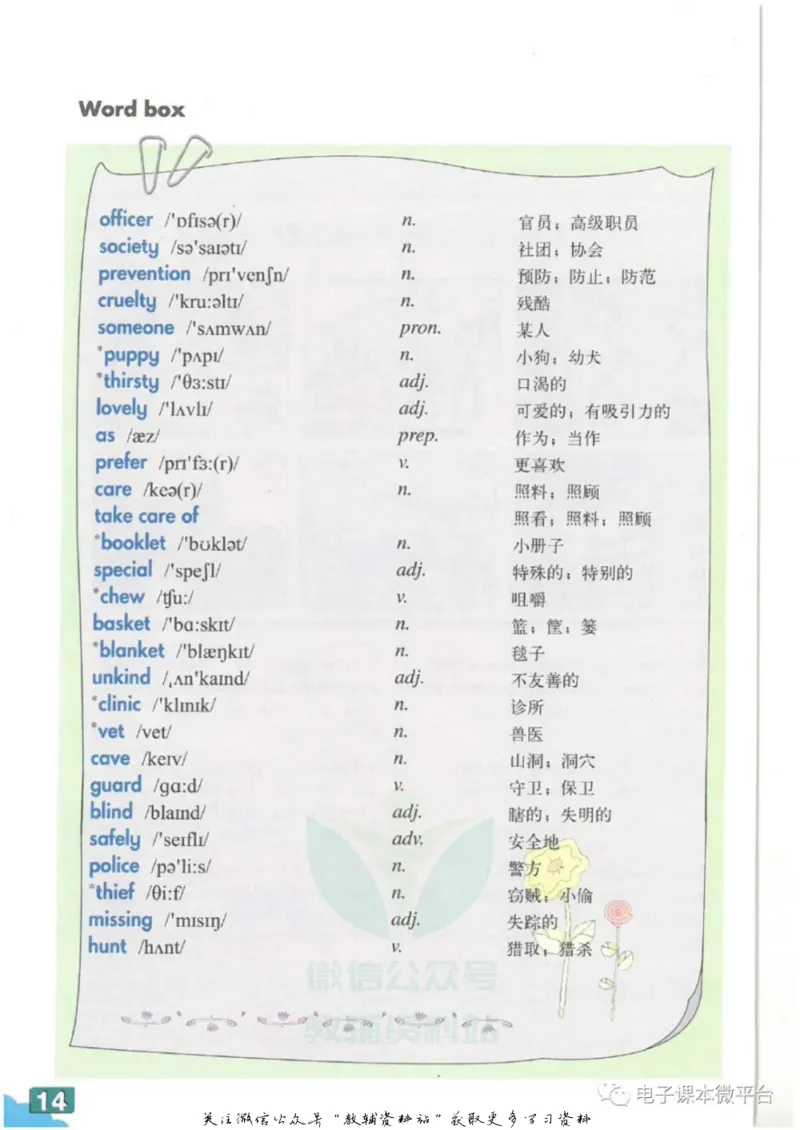 Word box
officer /'ɒfɪsə(r)/ n. 官员；高级职员
society /sə'saɪətɪ/ n. 社团；协会
prevention /prɪ'venʃn/ n. 预防；防止；防范
cruelty /'kru:əltɪ/ n. 残酷
someone /'sʌmwʌn/ pron. 某人
*puppy /'pʌpɪ/ n. 小狗；幼犬
*thirsty /'θɜ:stɪ/ adj. 口渴的
lovely /'lʌvlɪ/ adj. 可爱的；有吸引力的
as /æz/ prep. 作为；当作
prefer /prɪ'fɜ:(r)/ v. 更喜欢
care /keə(r)/ n. 照料；照顾
take care of 照看；照料；照顾
*booklet /'bʊklət/ n. 小册子
special /'speʃl/ adj. 特殊的；特别的
*chew /tʃu:/ v. 咀嚼
basket /'bɑ:skɪt/ n. 篮；筐；篓
*blanket /'blæŋkɪt/ n. 毯子
unkind /ˌʌn'kaɪnd/ adj. 不友善的
*clinic /'klɪnɪk/ n. 诊所
*vet /vet/ n. 兽医
cave /keɪv/ n. 山洞；洞穴
guard /gɑ:d/ v. 守卫；保卫
blind /blaɪnd/ adj. 瞎的；失明的
safely /'seɪflɪ/ adv. 安全地
police /pə'li:s/ n. 警方
*thief /θi:f/ n. 窃贼；小偷
missing /'mɪsɪŋ/ adj. 失踪的
hunt /hʌnt/ v. 猎取；猎杀
微信公众号
教辅资料站
14
电子课本微平台
关注微信公众号"教辅资料站"获取更多学习资料